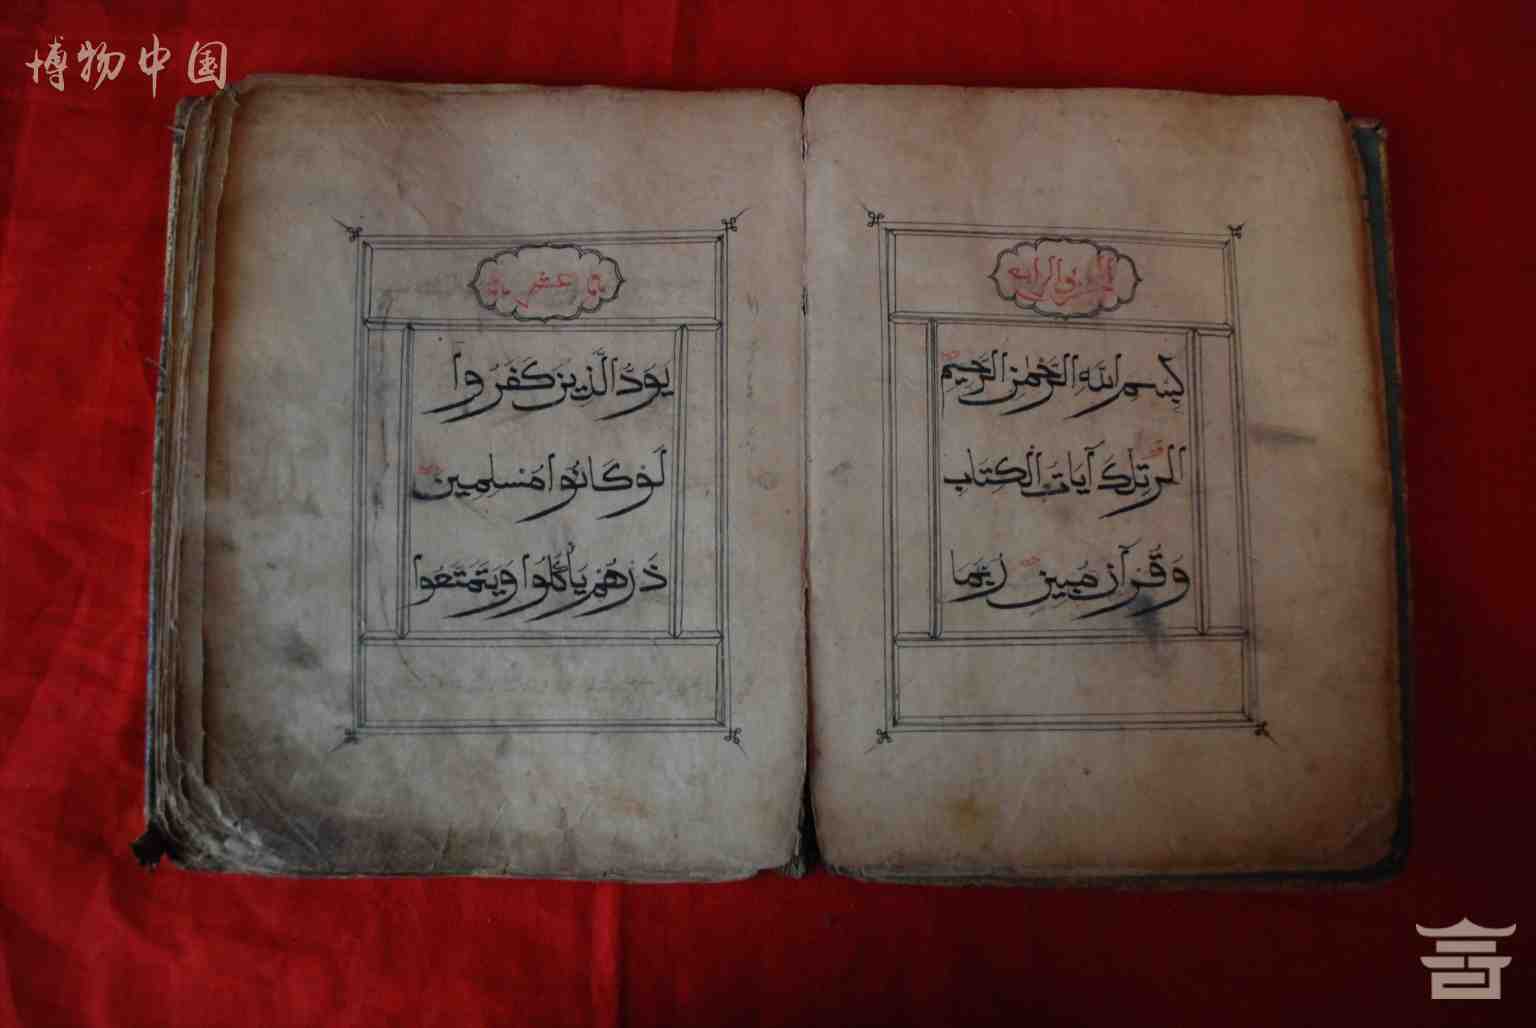 博物中国
الجزء الرابع
بِسْمِ اللهِ الرَّحْمٰنِ الرَّحِيمِ
الر تِلْكَ آيَاتُ الْكِتَابِ
وَقُرْآنٍ مُبِينٍ رُبَمَا
عشر
يَوَدُّ الَّذِينَ كَفَرُوا
لَوْ كَانُوا مُسْلِمِينَ
ذَرْهُمْ يَأْكُلُوا وَيَتَمَتَّعُوا